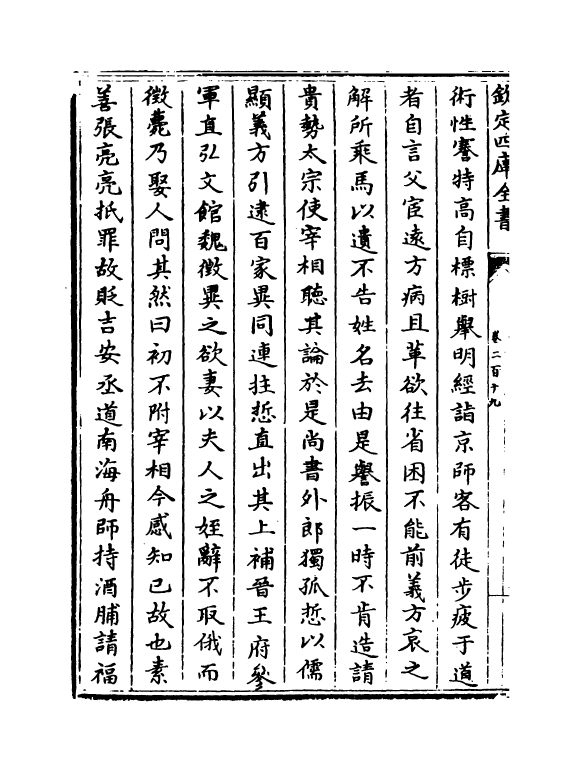 欽定四庫全書
卷二百十九
術性謇特高自標樹舉明經詣京師客有徒步疲于道
者自言父宦逺方病且革欲往省困不能前義方哀之
解所乗馬以遺不告姓名去由是譽振一時不肯造請
貴勢太宗使宰相聽其論於是尚書外郎獨孤悊以儒
顯義方引逮百家異同連拄悊直出其上補晉王府參
軍直弘文館魏徴異之欲妻以夫人之姪辭不取俄而
徴薨乃娶人問其然曰初不附宰相今感知已故也素
善張亮亮抵罪故貶吉安丞道南海舟師持酒脯請福